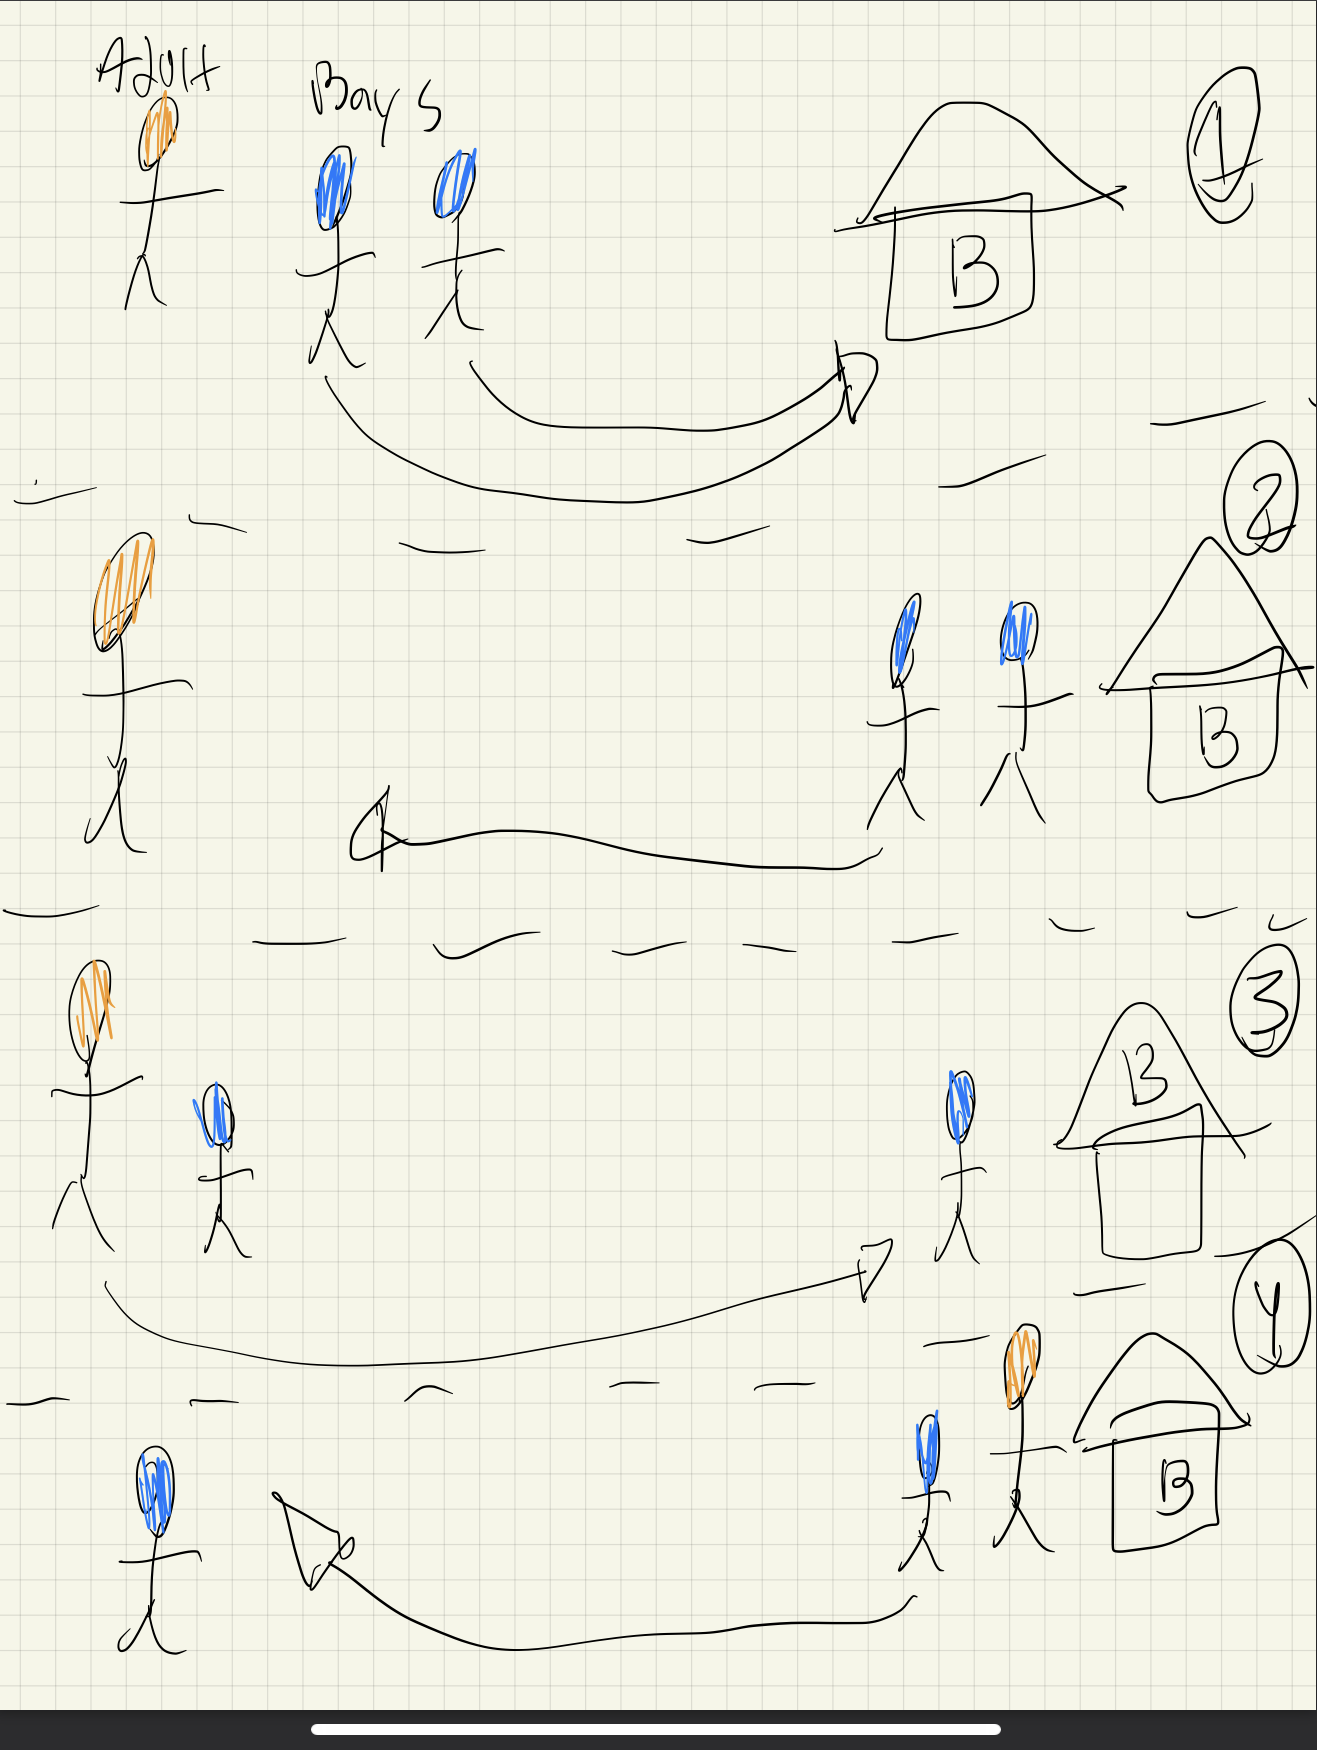 Adult
Boys
1
B
2
B
3
B
4
B